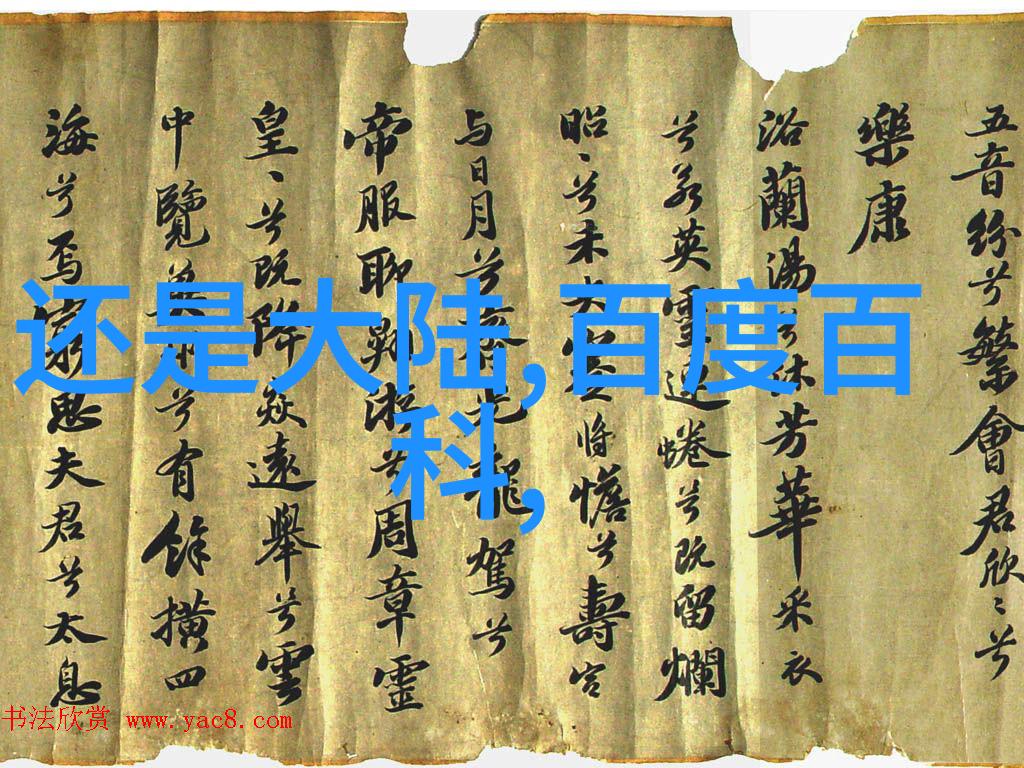 五音纷兮繁會君欣〻兮
樂康
浴蘭湯兮沐芳華采衣
兮若英靈連蜷兮既留爛
昭〻兮未央蹇将憺兮壽宫
与日月兮齊光龍駕兮
帝服聊翱游兮周章靈
皇〻兮既降猋遠舉兮雲
中覽冀州兮有餘横四
海兮焉窮思夫君兮太息
还是大陆,百度百
科,
书法欣赏 www.yac8.com